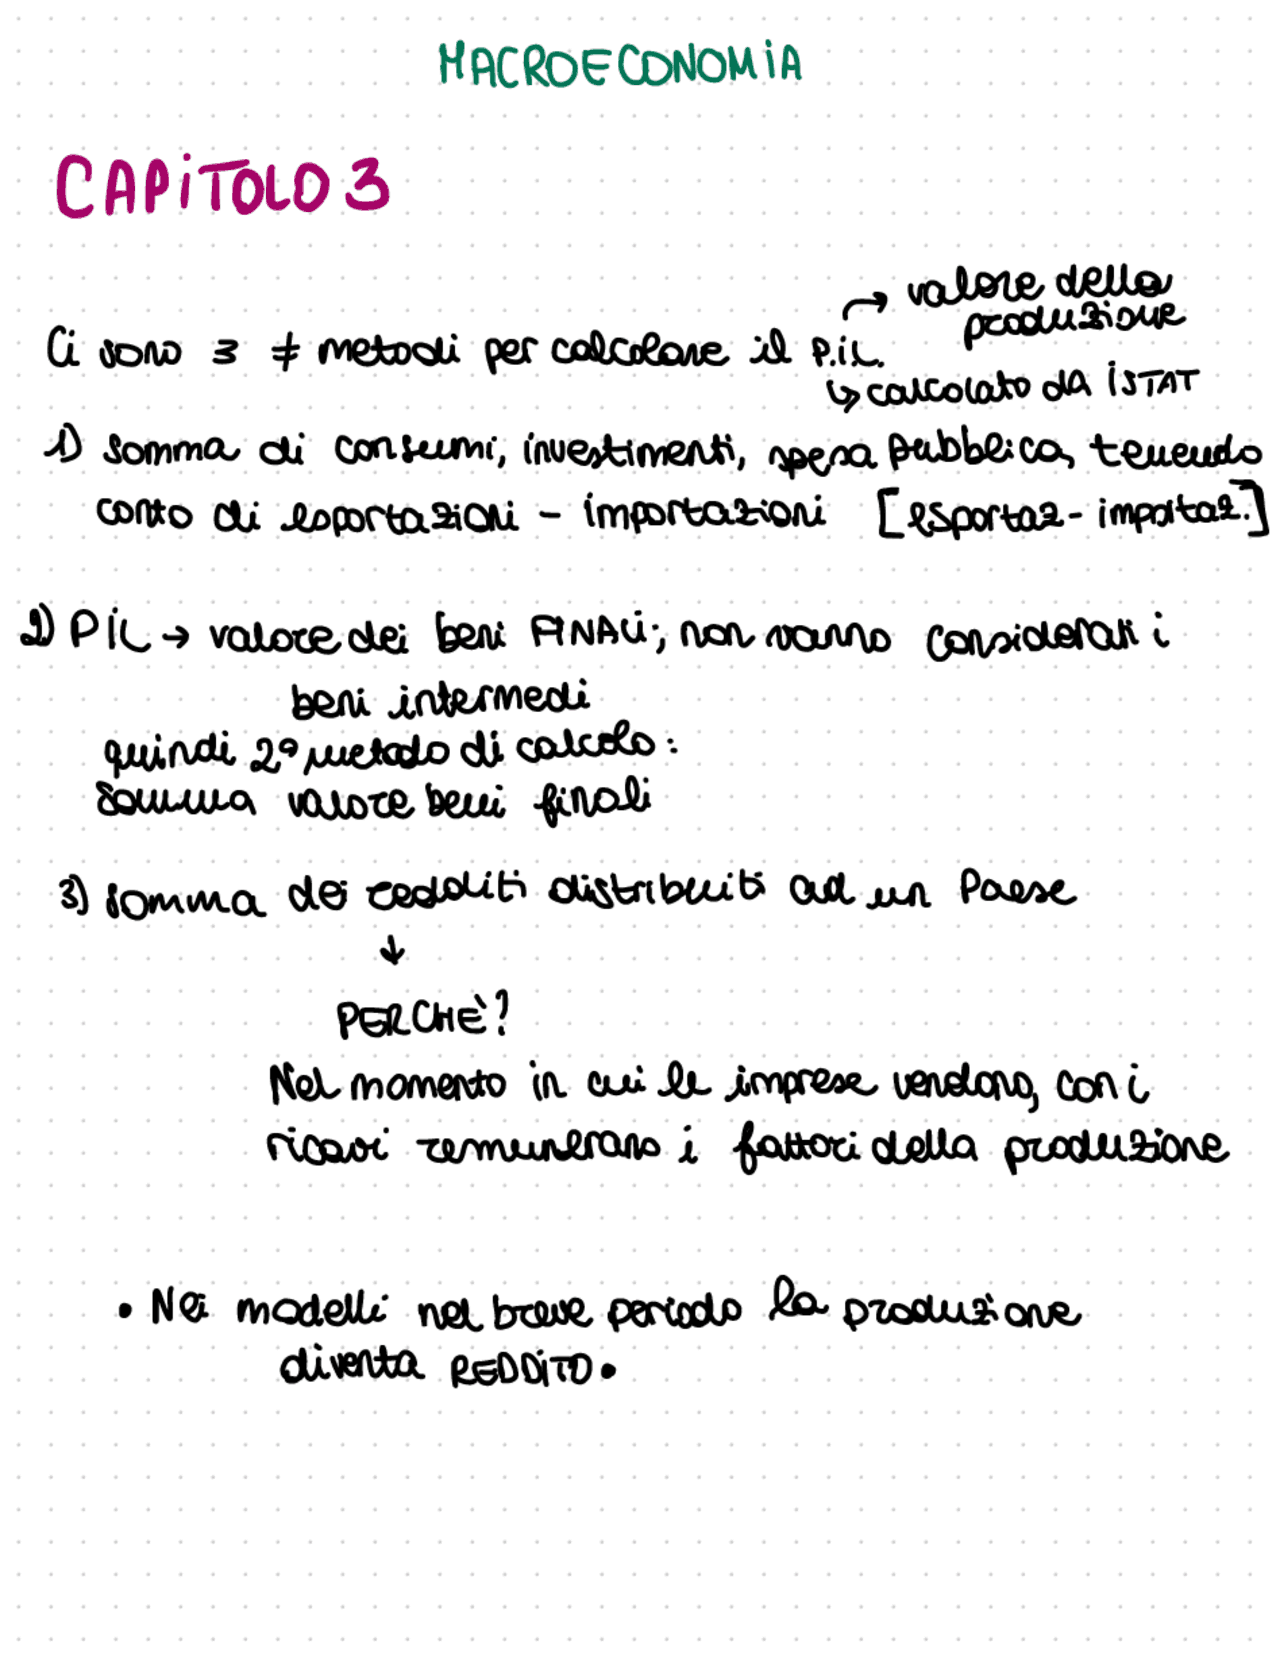 MACROECONOMIA
CAPITOLO 3
→ valore della
produzione
Ci sono 3 ≠ metodi per calcolare il P.IL.
↳ calcolato da ISTAT
1) somma di consumi, investimenti, spesa pubblica, tenendo
conto di esportazioni - importazioni [esportaz - importaz.]
2) PIL → valore dei beni FINALI; non vanno considerati i
beni intermedi
quindi 2º metodo di calcolo:
somma valore beni finali
3) somma dei redditi distribuiti ad un Paese
↓
PERCHÈ?
Nel momento in cui le imprese vendono, con i
ricavi remunerano i fattori della produzione
• Nei modelli nel breve periodo la produzione
diventa REDDITO •